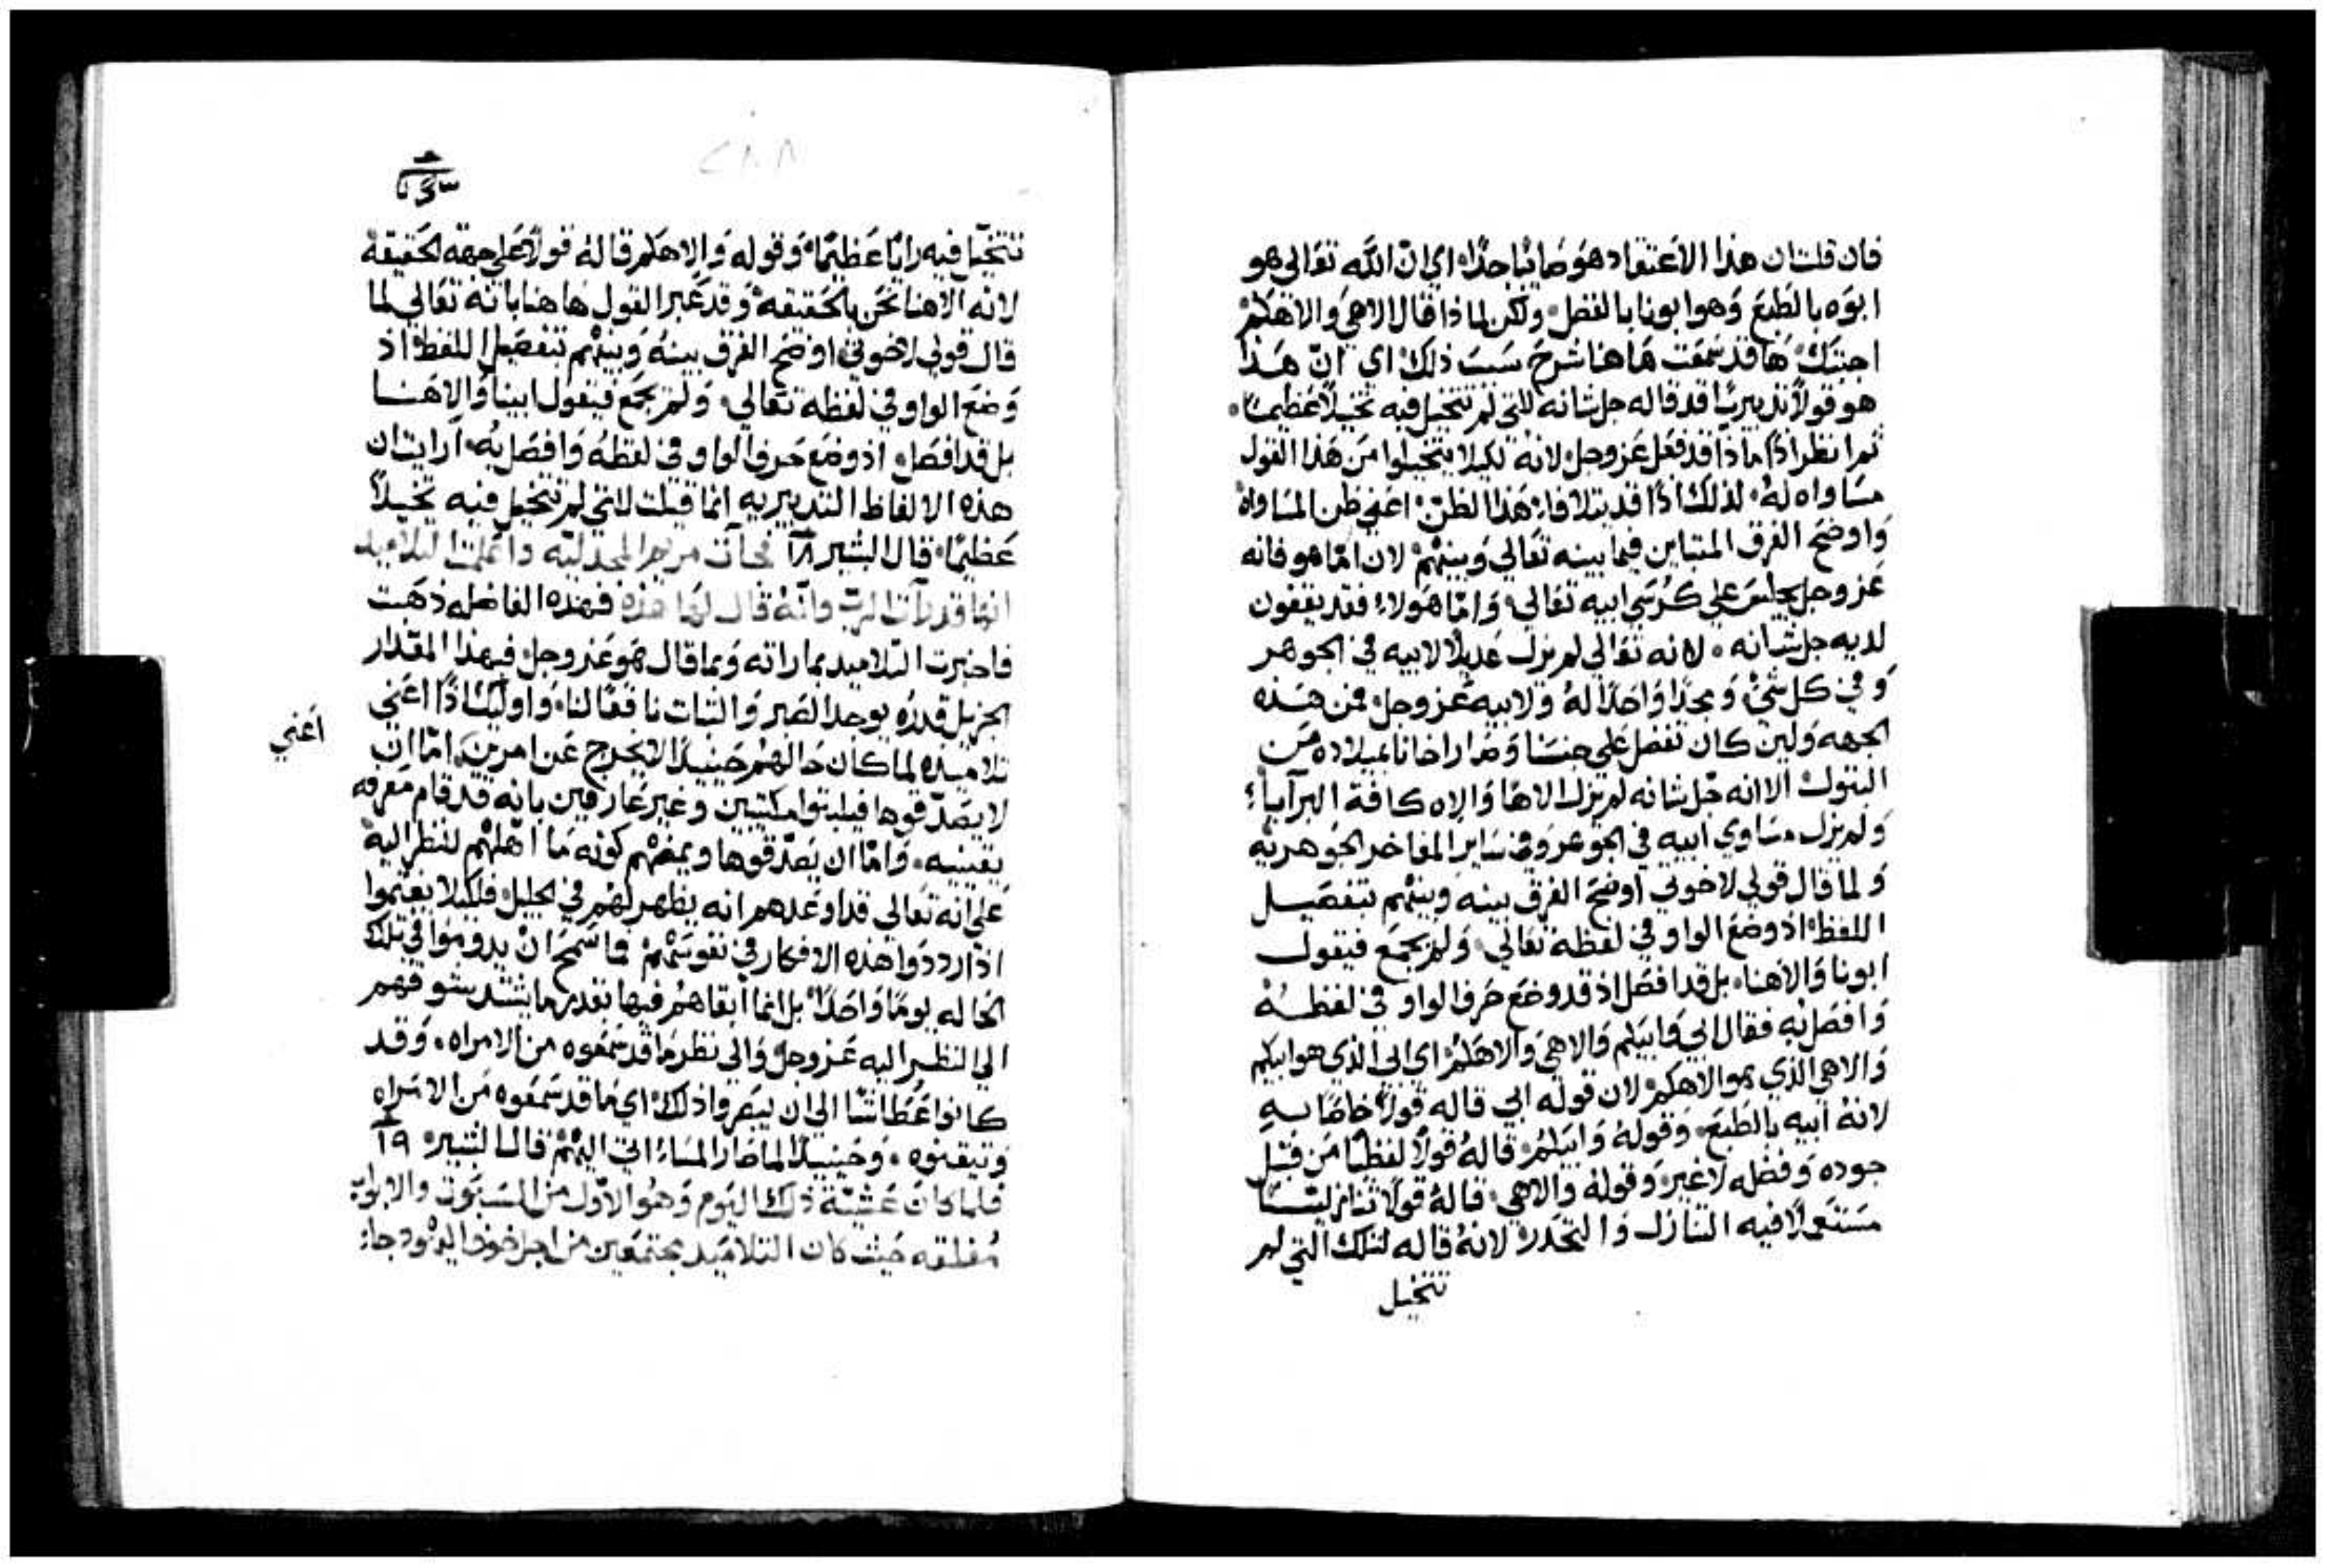 فان قلت ان هذا الاعتقاد هو صائبا جدا، اي ان الله تعالى هو
ابوه بالطبع وهو ابونا بالفضل، ولكن لماذا قال الاهي والاهكم
اجبتك، ها قد سمعت هاهنا شرح سبب ذلك، اي ان هذا
هو قولا تدبيريا قد قاله جل شانه للتي لم تتخيل فيه تخيلا عظيما،
ثم انظر اذا ماذا قد فعل عز وجل، لانه لكيلا يتخيلوا من هذا القول
مساواه له، لذلك اذا قد يتلافا، هذا الظن، اعني ظن المساواة
واوضح الفرق المتباين فيما بينه تعالي وبينهم، لان اما هو فانه
عز وجل يجلس علي كرسي ابيه تعالي، واما هولاء فقد يقفون
لديه جل شانه، لانه تعالي لم يزل عديلا لابيه في الجوهر
وفي كل شيء، ومجدا واحدا له ولابيه عز وجل، فمن هذه
الجهه ولين كان تفضل علي جنسنا وصار اخانا بميلاده من
البتول، الا انه جل شانه لم يزل الاها والاه كافة البرايا؛
ولم يزل مساوي ابيه في الجوهر وفي ساير المفاخر الجوهريه
ولما قال قولي لاخوتي اوضح الفرق بينه وبينهم بتفصيل
اللفظ، اذ وضع الواو في لفظه تعالي، ولم يجمع فيقول
ابونا والاهنا، بل قد افصل اذ قد وضع حرف الواو في لفظه
وافصل به فقال ابي وابيكم والاهي والاهكم، اي ابي الذي هو ابيكم
والاهي الذي هو الاهكم، لان قوله ابي قاله قولا خاصا به
لانه ابيه بالطبع، وقوله وابيكم، قاله قولا لفظيا من قبل
جوده وفضله لا غير، وقوله والاهي، قاله قولا تنازليا
مستعملا فيه التنازل والتحدر، لانه قاله لتلك التي لم
تتخيل
تتخيل فيه رايا عظيما، وقوله والاهكم قاله قولا علي جهة الحقيقة
لانه الاهنا نحن بالحقيقه، وقد عبر القول هاهنا بانه تعالي لما
قال قولي لاخوتي، اوضح الفرق بينه وبينهم بتفصيل اللفظ، اذ
وضع الواو في لفظه تعالي، ولم يجمع فيقول ابينا والاهنا
بل قد افصل، اذ وضع حرف الواو في لفظه وافصل به، ارايت ان
هذه الالفاظ التدبيريه انما قيلت للتي لم تتخيل فيه تخيلا
عظيما، قال البشير ١٨ فجات مريم المجدليه واعلمت التلاميذ
انها قد رات الرب وانه قال لها هذه فهذه الفاضله ذهبت
فاخبرت التلاميذ بما راته وبما قال هو عز وجل، فبهذا المقدار
الجزيل قدره يوجد الصبر والثبات نافعا لنا، واوليك اذا اعني
اعني
تلاميذه لما كان حالهم حينيذ لا يخرج عن امرين، اما ان
لا يصدقوها فيلبثوا مكتيبين وغير عارفين بانه قد قام معرفه
يقينيه، واما ان يصدقوها ويمضهم كونه ما اهلهم لنظر اليه
علي انه تعالي قد اوعدهم انه يظهر لهم في الجليل، فلكيلا يغتموا
اذا رددوا هذه الافكار في نفوسهم، فما سمح ان يدوموا في تلك
الحاله يوما واحدا، بل انما ابقاهم فيها بقدر ما يشتد شوقهم
الي النظر اليه عز وجل والي نظر ما قد سمعوه من الامراه، وقد
كانوا عطاشا الي ان يبصروا ذلك، اي ما قد سمعوه من الامراه
وتيقنوه، وحينيذ لما صار المساء اتي اليهم، قال البشير، ١٩
فلما كان عشية ذلك اليوم وهو الاول من السبوت والابواب
مغلقه حيث كان التلاميذ مجتمعين من اجل خوف اليهود جاء